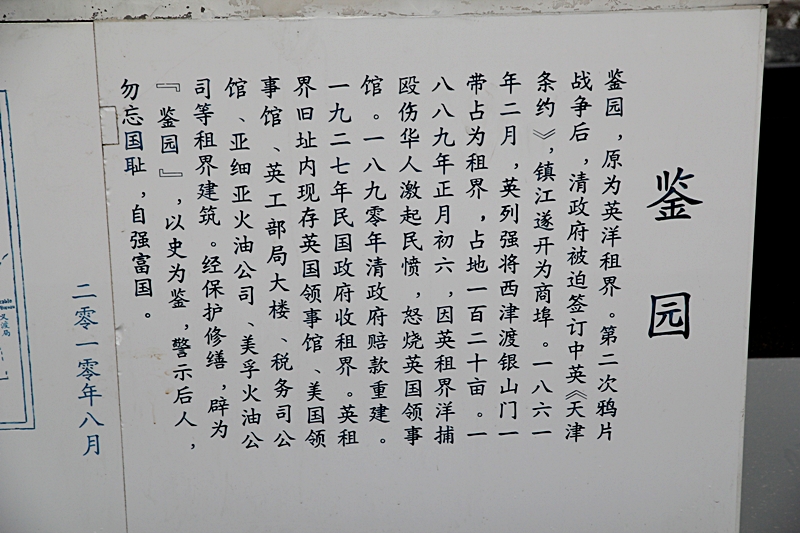 鉴园
鉴园，原为英洋租界。第二次鸦片
战争后，清政府被迫签订中英《天津
条约》，镇江遂开为商埠。一八六一
年二月，英列强将西津渡银山门一
带占为租界，占地一百二十亩。一
八八九年正月初六，因英租界洋捕
殴伤华人激起民愤，怒烧英国领事
馆。一八九零年清政府赔款重建。
一九二七年民国政府收租界。英租
界旧址内现存英国领事馆、美国领
事馆、英工部局大楼、税务司公
馆、亚细亚火油公司、美孚火油公
司等租界建筑。经保护修缮，辟为
『鉴园』，以史为鉴，警示后人，
勿忘国耻，自强富国。
二零一零年八月